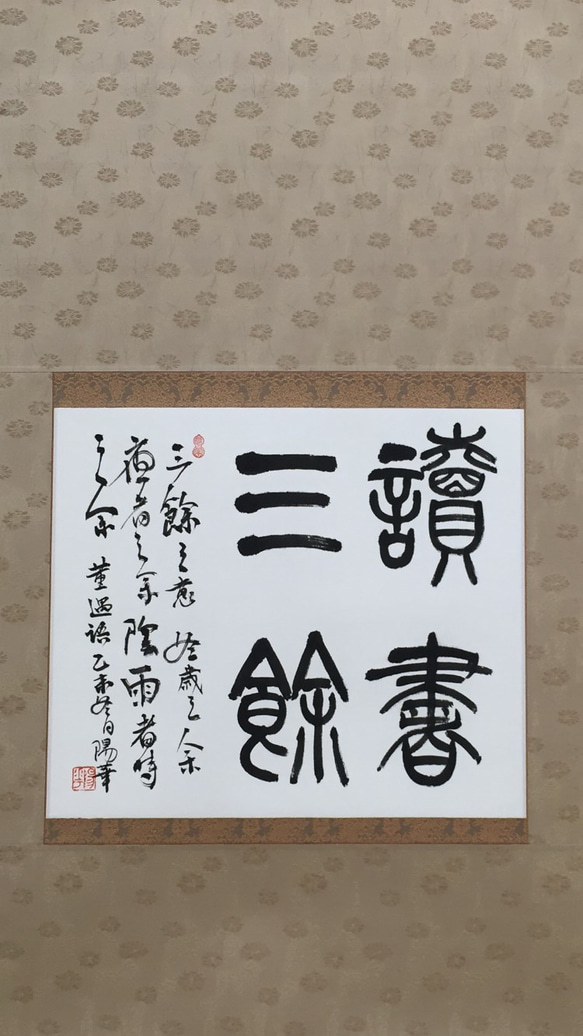 讀書
三餘
三餘之意 冬歲之余
夜者之余 陰雨者時
之余 董遇語 乙未冬月 陽華